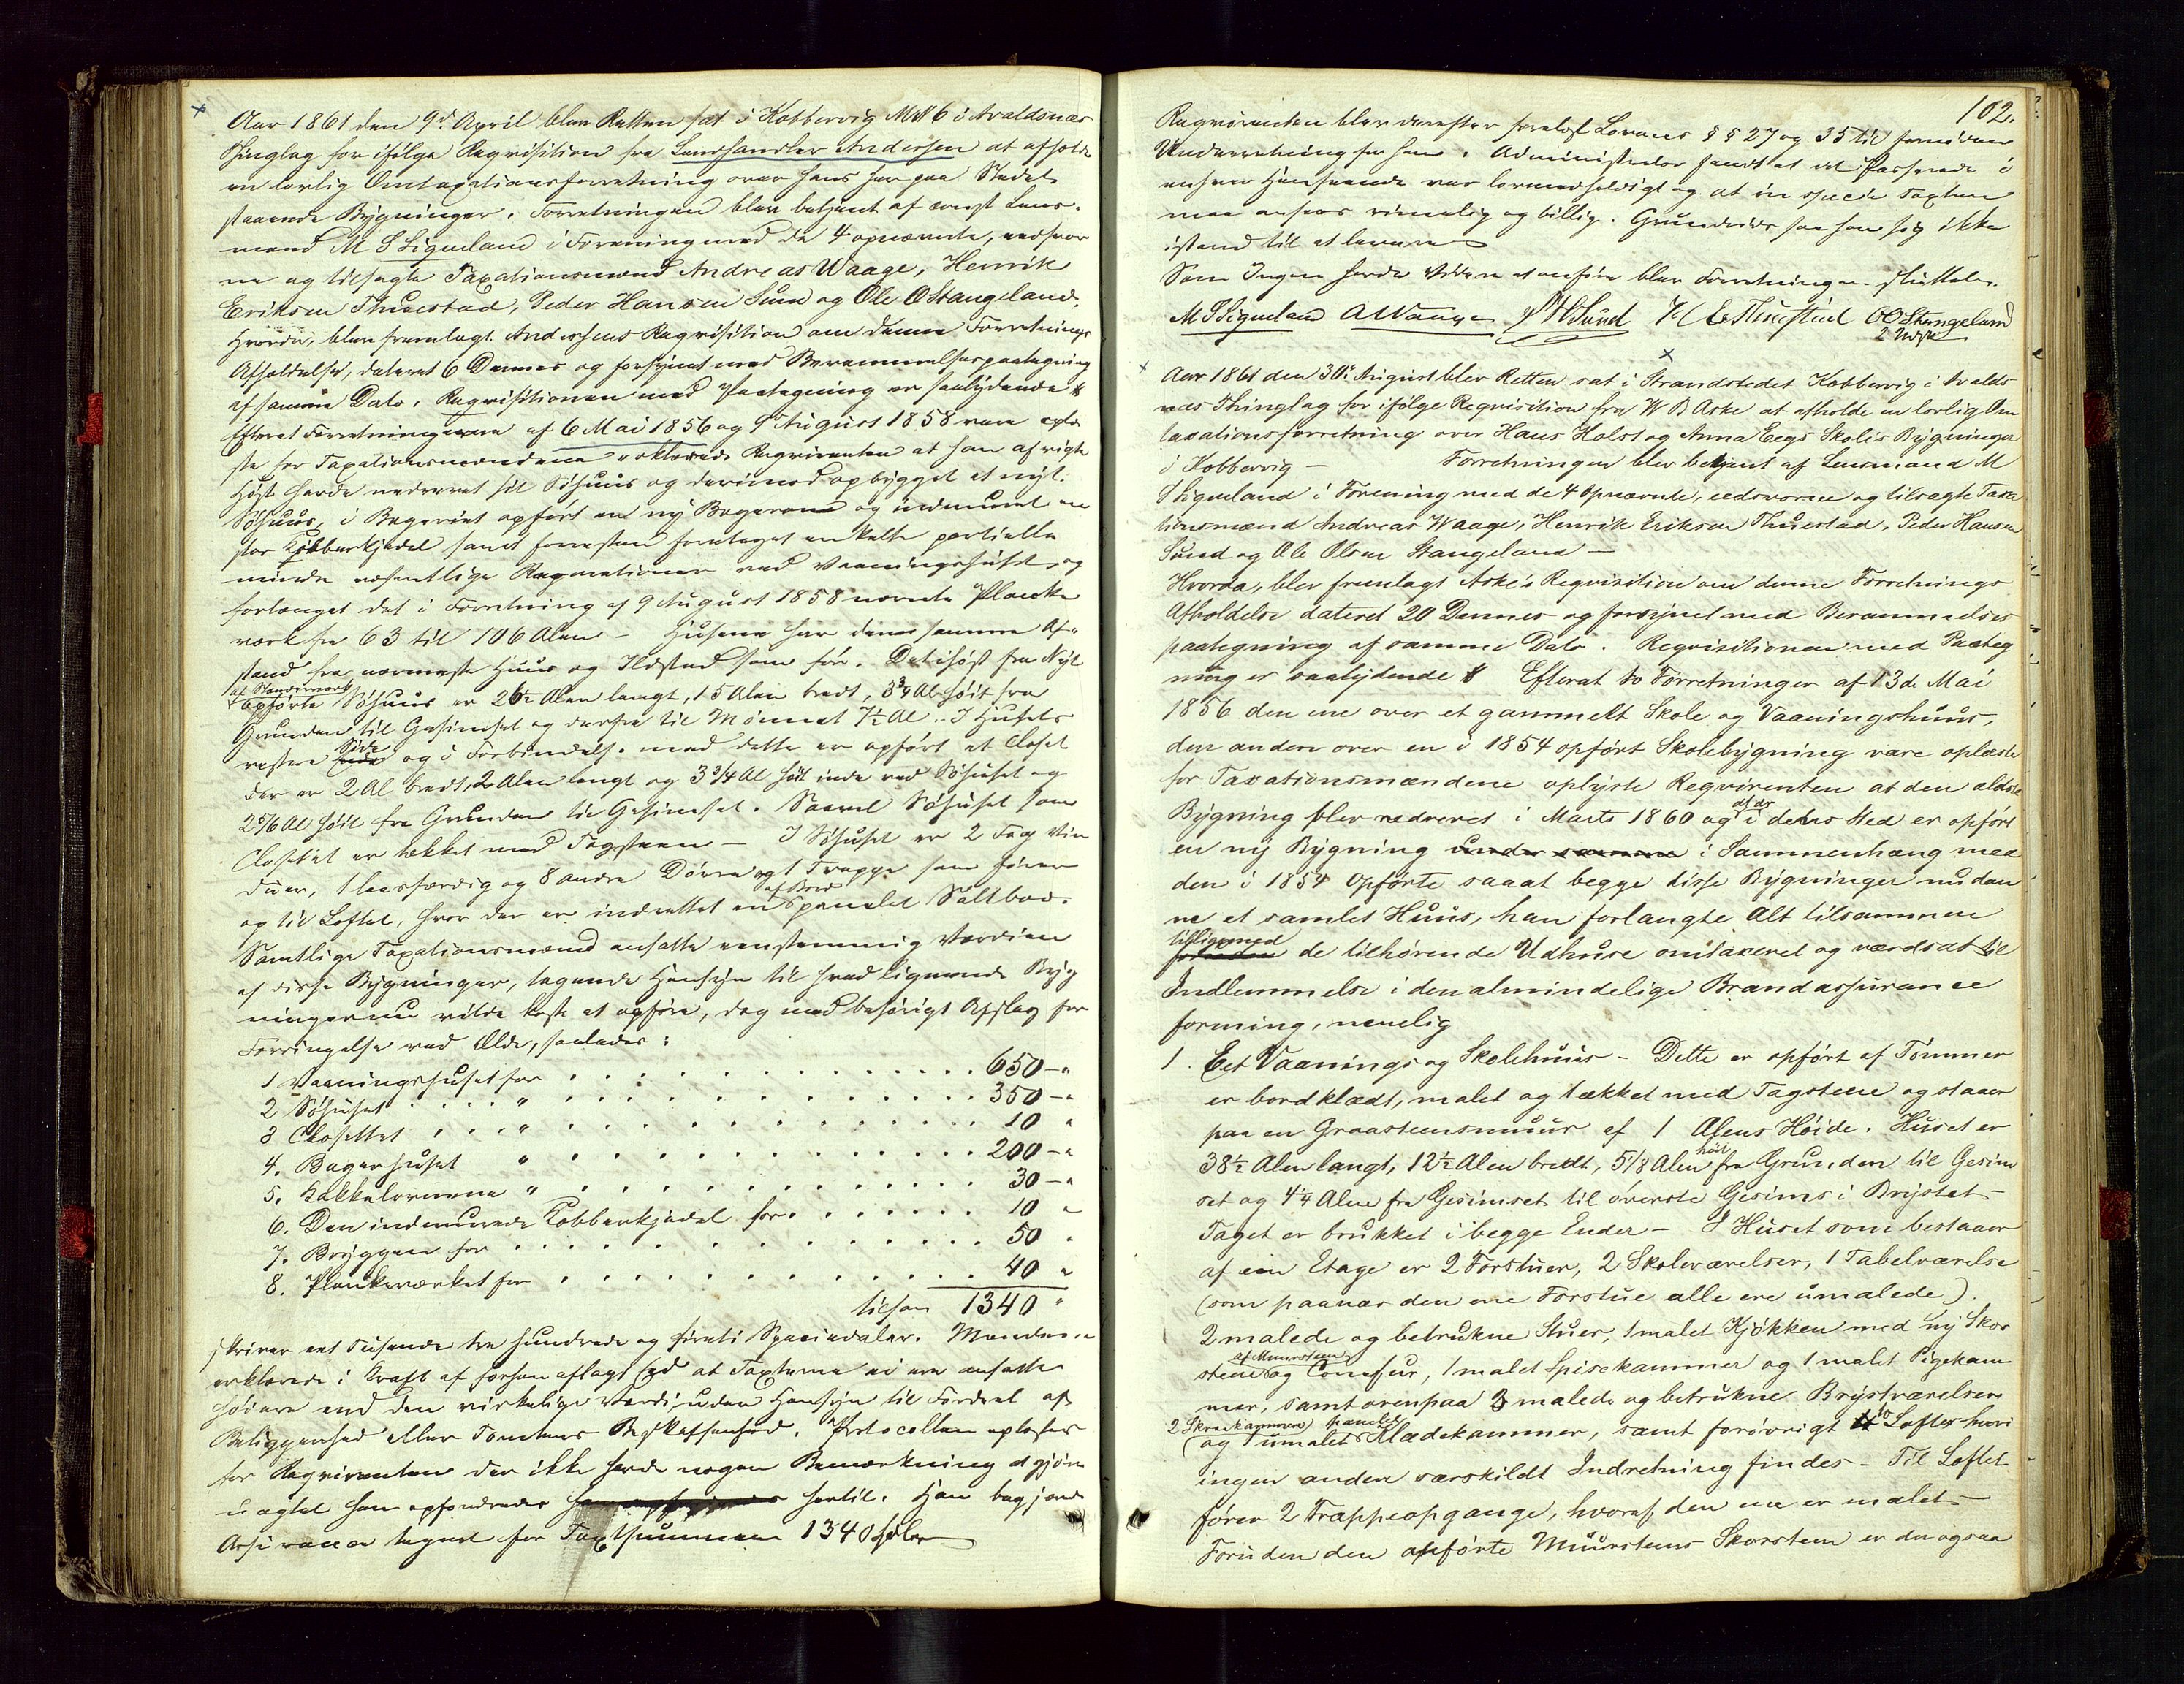 Aar 1861 den 9de April blev Retten sat i Kobbervig M N 6 i Avaldsnæs
Thinglag for ifølge Reqvisition fra Landhandler Andersen at afholde
en lovlig Omtaxationsforretning over hans her paa Stedet
staaende Bygninger. Forretningen blev betjent af const Lens-
mand M S Liqueland i Forening med de 4 opnævnte, eedsvor
ne og tilsagte Taxationsmænd Andreas Waage, Henrik
Eriksen Thuestad, Peder Hansen Sund og Ole O Stangeland.
Hvorda, blev fremlagt Andersens Reqvisition om denne Forretnings
Afholdelse, dateret 6 Dennes og forsynet med Berammelsespaategning
af samme Dato. Reqvisitionen med Paategning er saalydende
Efterat Forretningerne af 6 Mai 1856 og 9 August 1858 vare oplæ
ste for Taxationsmændene erklærede Reqvirenten at han afvigte
Høst havde nedrevet sit Søhuus og derimod opbygget et nyt
Søhuus, i Bageriet opført en ny Bagerovn og indmuret en
stor Kobberkjedel samt forresten foretaget enkelte partielle
mindre væsentlige Reparationer ved Vaaningshuset, og
forlænget det i Forretning af 9 August 1858 nævnte Planke
værk fra 63 til 106 Alen - Husene har den samme Af-
stand fra nærmeste Huus og Ildsted som før. Det ihøst fra Nyt
af Standerværk
opførte Søhuus er 26½ Alen langt, 15 Alen bredt, 3¾ Al høit fra
Grunden til Gesimset og derfra til Mønnet 7½ Al.. I Husets
vestre Side og i Forbindelse med dette er opført et Closet
der er 2 Al bredt, 2 Alen langt og 3 3/4 Al høit inde ved Søhuset og
2 5/6 Al høit fra Grunden til Gesimset. Saavel Søhuset som
Closettet er tækket med Tagsteen - I Søhuset er 2 Fag Vin
duer, 1 laasfærdig og 8 andre Dørre og 1 Trappe som fører
af Bord
op til Loftet, hvor der er indrettet en panelet Saltbod.
Samtlige Taxationsmænd ansatte eenstemmig Værdien
af disse Bygninger, tagende Hensyn til hvad lignende Byg
ninger nu vilde koste at opføre, dog med behørigt Afslag for
Forringelse ved Ælde, saaledes:
1 Vaaningshuset for . . . . . . . . . . 650 - "
2 Søhuset . . . . " . . . . . . . . . . 350 - "
3 Closettet . . . " . . . . . . . . . . 10 "
4. Bagerhuset " . . . . . . . . . . 200 - "
5. Kakkelovnene " . . . . . . . . . . 30 - "
6. Den indmurede Kobberkjedel for . . . . . . 10 "
7. Bryggen for . . . . . . . . . . 50 "
8. Plankeværket for . . . . . . . . . . 40 "
tilsam 1340 "
skriver eet Tusende tre Hundrede og fireti Speciedaler. Mændene
erklærede i Kraft af forhen aflagt Ed at Taxterne ei ere ansatte
høiere end den virkelige Værdi, uden Hensyn til Fordeel af
Beliggenhed eller Tomtens Beskaffenhed. Protocollen oplæstes
for Reqvirenten der ikke havde nogen Bemærkning at gjøre
uagtet han opfordredes hertil. Han begjærede
Assurance tegnet for Taxtsummen 1340 Spdlr
102.
Reqvirenten blev derefter forelagt Lovens §§ 27 og 35 til fornøden
Underretning for ham. Administrator fandt at det Passerede i
enhver Henseende var lovmedholdigt og at in specie Taxten
maa ansees rimelig og billig. Grundrids saa han sig ikke
istand til at levere
Som Ingen havde Videre at anføre blev Forretningen sluttet.
M S Liqueland A Waage P H Sund H E Thuestad O O Stangeland
2 Udsk
Aar 1861 den 30te August blev Retten sat i Strandstedet Kobbervig i Avalds
næs Thinglag for ifølge Reqvisition fra W B Aske at afholde en lovlig Om
taxationsforretning over Hans Holst og Anna Eegs Skoles Bygninger
i Kobbervig - Forretningen blev betjent af Lensmand M
S Liqueland i Forening med de 4 opnævnte, eedsvorne og tilsagte Taxa
tionsmænd Andreas Waage, Henrik Eriksen Thuestad, Peder Hansen
Sund og Ole Olsen Stangeland -
Hvorda, blev fremlagt Aske's Reqvisition om denne Forretnings
Afholdelse dateret 20 Dennes og forsynet med Berammelses
paategning af samme Dato. Reqvisitionen med Paateg
ning er saalydende Efterat to Forretninger af 13de Mai
1856 den ene over et gammelt Skole og Vaaningshuus,
den anden over en i 1854 opført Skolebygning vare oplæste
for Taxationsmændene oplyste Reqvirenten at den ældste
Bygning blev nedrevet i Marts 1860 og at der i dens Sted er opført
en ny Bygning under samme i Sammenhæng med
den i 1854 opførte saaat begge disse Bygninger nu dan
ne et samlet Huus, han forlangte Alt tilsammen
tilligemed
foruden de tilhørende Udhuse omtaxeret og værdsat til
Indlemmelse i den almindelige Brandassurance
forening, nemlig
1. Eet Vaanings og Skolehuus - Dette er opført af Tømmer
er bordklædt, malet og tækket med Tagstene og staaer
paa en Graasteensmuur af 1 Alens Høide. Huset er
38½ Alen langt, 12½ Alen bredt, 5 1/8 Alen høit fra Grunden til Gesim
set og 4¼ Alen fra Gesimset til øverste Gesims i Brystet -
Taget er brukket i begge Ender - I Huset som bestaaer
af een Etage er 2 Forstuer, 2 Skoleværelser, 1 Tabelværelse
(som paanær den ene Forstue alle ere umalede).
2 malede og betrukne Stuer, 1 malet Kjøkken med ny Skor
af Muursteen
steen og Comfur, 1 malet Spisekammer og 1 malet Pigekam
mer, samt ovenpaa 3 malede og betrukne Brystværelser
2 Skraakammere panelet
og 1 umalet Klædekammer, samt forøvrigt to Lofter hvori
ingen anden særskildt Indretning findes - Til Loftet
fører 2 Trappeopgange, hvoraf den ene er malet -
Foruden den anførte Muursteens Skorsteen er der ogsaa